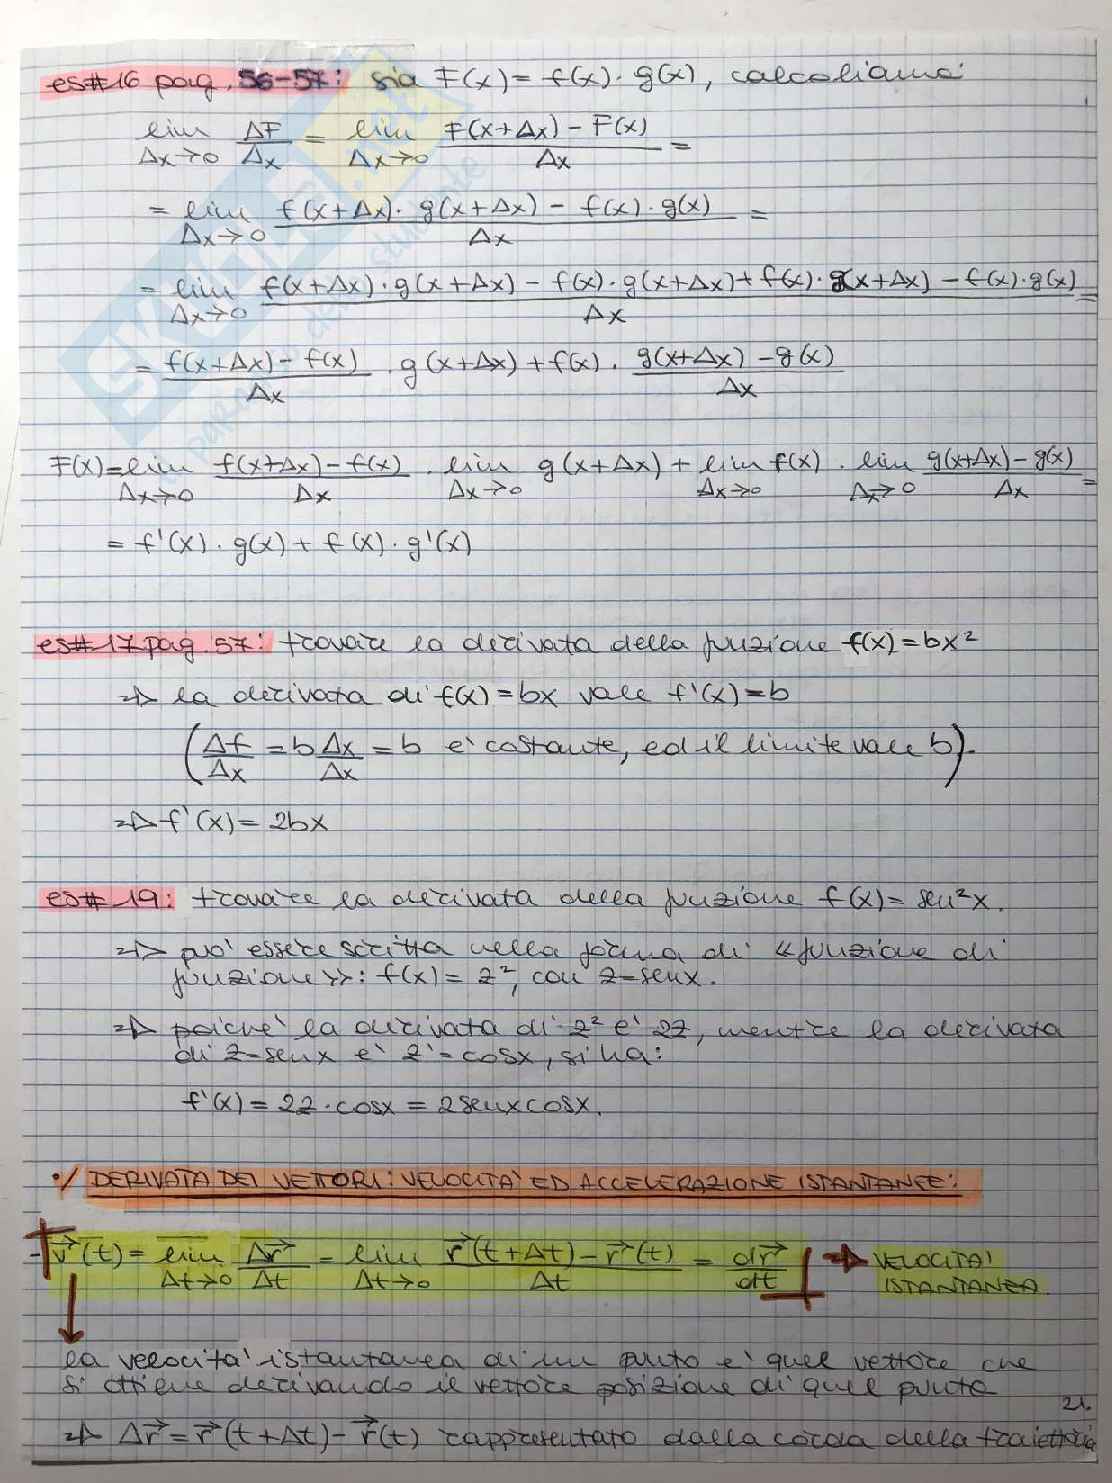 es#16 pag. 56-57: sia F(x) = f(x) · g(x), calcoliamo:
lim Δx→0 ΔF/Δx = lim Δx→0 (F(x+Δx) - F(x))/Δx =
= lim Δx→0 (f(x+Δx) · g(x+Δx) - f(x) · g(x))/Δx =
= lim Δx→0 (f(x+Δx) · g(x+Δx) - f(x) · g(x+Δx) + f(x) · g(x+Δx) - f(x) · g(x))/Δx =
= (f(x+Δx) - f(x))/Δx · g(x+Δx) + f(x) · (g(x+Δx) - g(x))/Δx
F(x) = lim Δx→0 (f(x+Δx) - f(x))/Δx · lim Δx→0 g(x+Δx) + lim Δx→0 f(x) · lim Δx→0 (g(x+Δx) - g(x))/Δx =
= f'(x) · g(x) + f(x) · g'(x)
es#17 pag. 57: trovare la derivata della funzione f(x) = bx²
⇒ la derivata di f(x) = bx vale f'(x) = b
(Δf/Δx = b Δx/Δx = b e' costante, ed il limite vale b).
⇒ f'(x) = 2bx
es# 19: trovare la derivata della funzione f(x) = sen²x.
⇒ puo' essere scritta nella forma di «funzione di
funzione»: f(x) = z², con z=senx.
⇒ poiche' la derivata di z² e' 2z, mentre la derivata
di z=senx e' z'=cosx, si ha:
f'(x) = 2z · cosx = 2senxcosx.
•/ DERIVATA DEI VETTORI: VELOCITA' ED ACCELERAZIONE ISTANTANEE:
- v⃗(t) = lim Δt→0 Δr⃗/Δt = lim Δt→0 (r⃗(t+Δt) - r⃗(t))/Δt = dr⃗/dt ⇒ VELOCITA'
ISTANTANEA.
la velocita' istantanea di un punto e' quel vettore che
si ottiene derivando il vettore posizione di quel punto
21.
⇒ Δr⃗ = r⃗(t+Δt) - r⃗(t) rappresentato dalla corda della traiettoria
SKUOLA.net